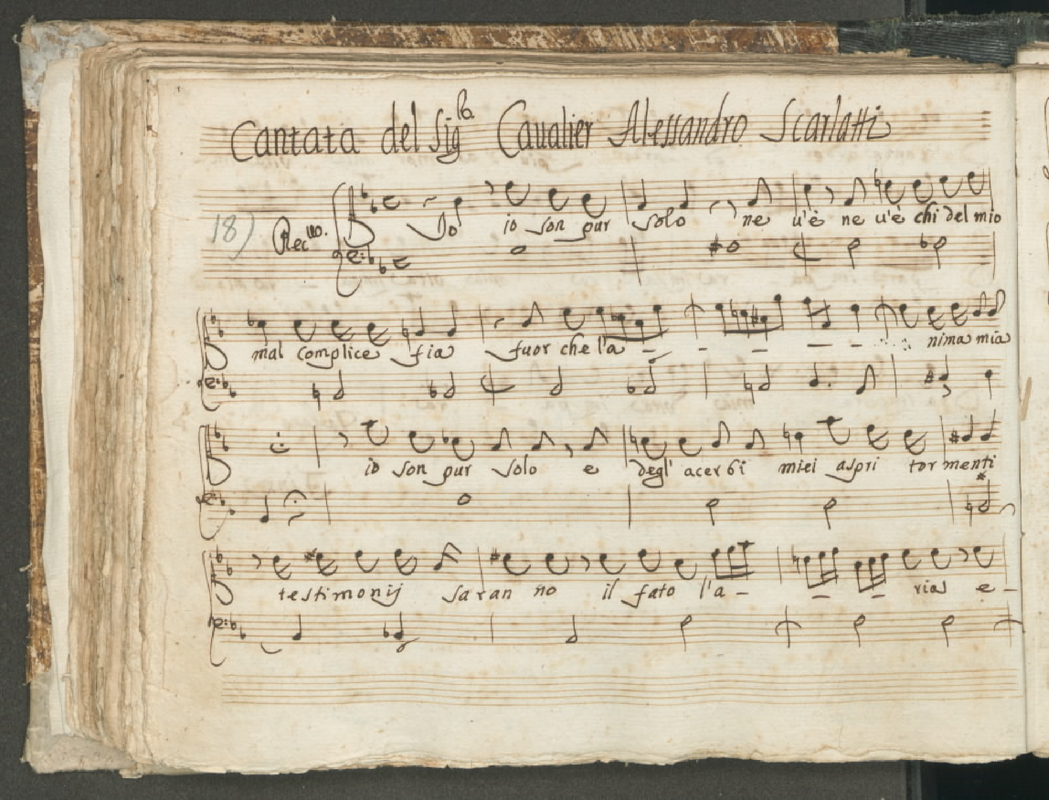 Cantata del Sig.r Caualier Alessandro Scarlatti
18) Rec.uo. io son pur solo ne u'è ne u'è chi del mio
mal complice fia fuor che l'a - - - - - nima mia
io son pur solo e degl' acerbi miei aspri tormenti
testimonij saranno il fato l'a - - - ria e -